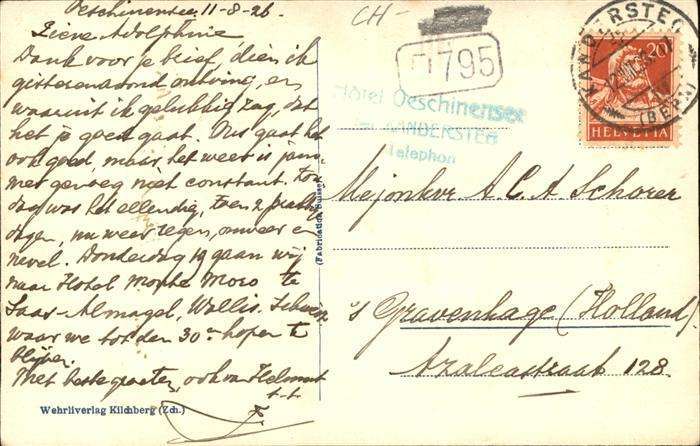 Oeschinensee 11-8-26.
Lieve Adolphine
Dank voor je brief, dien ik
gisterenavond ontving, en
waaruit ik gelukkig zag, dat
het je goed gaat. Ons gaat het
ook goed, maar het weer is jam-
mer genoeg niet constant.
dag was het ellendig, toen 2
dagen, nu weer regen, onweer en
nevel. Donderdag 19 gaan wij
naar Hotel Monte Moro te
Saas-Almagel, Wallis. Schweiz
waar we tot den 30en hopen te
blijven.
Met beste groeten, ook van Helmut
t.t.
Wehrliverlag Kilchberg (Zch.)
(Fabrication Suisse)
CH-
795
Hôtel Oeschinensee
bei KANDERSTEG
Telephon
KANDERSTEG
(BERN)
20
HELVETIA
Mejonkvr A. C. A Schorer
's Gravenhage (Holland)
Azaleastraat 128.